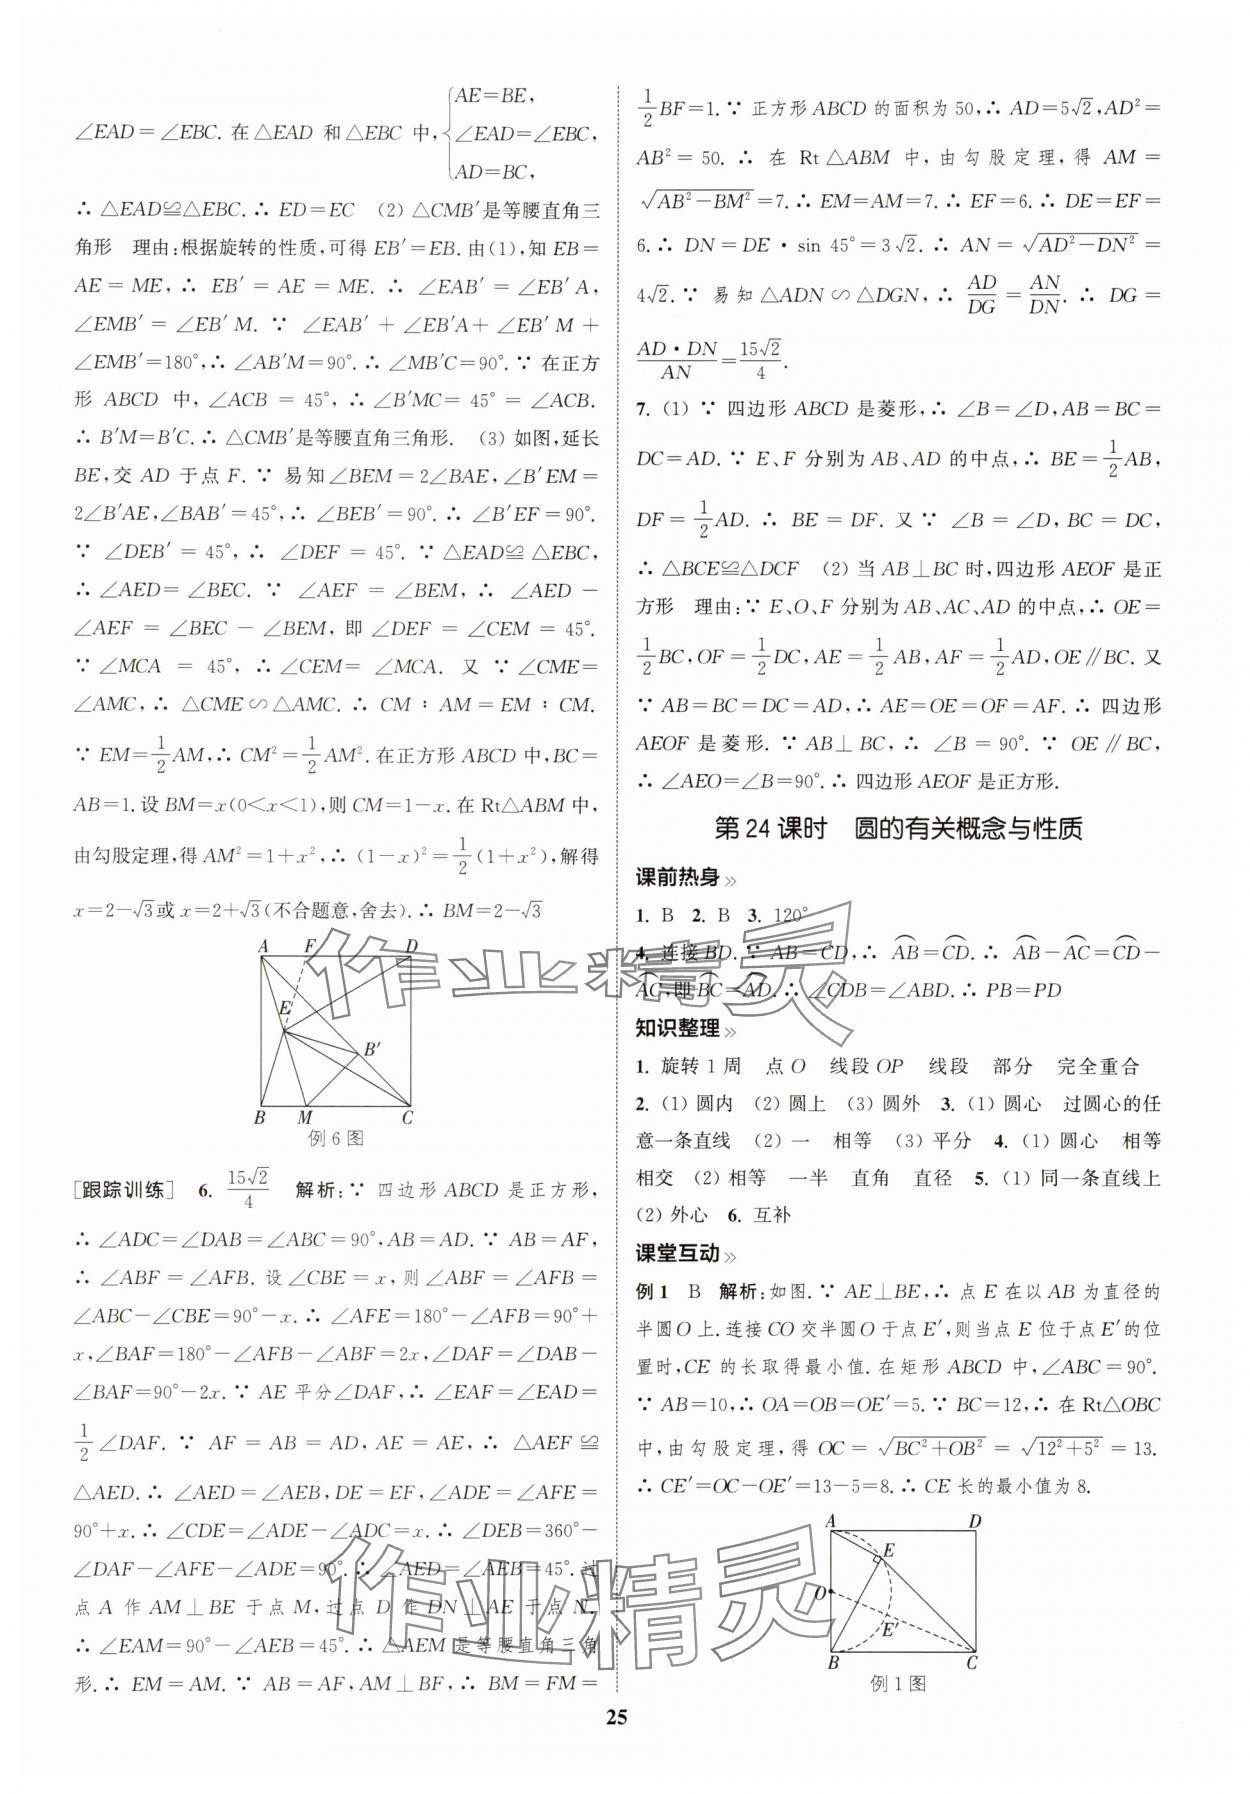 ∠EAD=∠EBC. 在△EAD 和△EBC 中,{AE=BE,
∠EAD=∠EBC,
AD=BC,
∴ △EAD≌△EBC. ∴ ED=EC (2) △CMB′是等腰直角三
角形 理由:根据旋转的性质,可得 EB′=EB. 由(1),知 EB=
AE=ME,∴ EB′=AE=ME. ∴ ∠EAB′=∠EB′A,
∠EMB′=∠EB′M. ∵ ∠EAB′+∠EB′A+∠EB′M+
∠EMB′=180°,∴ ∠AB′M=90°. ∴ ∠MB′C=90°. ∵ 在正方
形 ABCD 中,∠ACB=45°,∴ ∠B′MC=45°=∠ACB.
∴ B′M=B′C. ∴ △CMB′是等腰直角三角形. (3) 如图,延长
BE,交 AD 于点 F. ∵ 易知∠BEM=2∠BAE,∠B′EM=
2∠B′AE,∠BAB′=45°,∴ ∠BEB′=90°. ∴ ∠B′EF=90°.
∵ ∠DEB′=45°,∴ ∠DEF=45°. ∵ △EAD≌△EBC,
∴ ∠AED=∠BEC. ∵ ∠AEF=∠BEM,∴ ∠AED-
∠AEF=∠BEC-∠BEM,即∠DEF=∠CEM=45°.
∵ ∠MCA=45°,∴ ∠CEM=∠MCA. 又∵ ∠CME=
∠AMC,∴ △CME∽△AMC. ∴ CM:AM=EM:CM.
∵ EM=1/2AM,∴ CM²=1/2AM². 在正方形 ABCD 中,BC=
AB=1. 设 BM=x(0<x<1),则 CM=1-x. 在 Rt△ABM 中,
由勾股定理,得 AM²=1+x²,∴ (1-x)²=1/2(1+x²),解得
x=2-√3或 x=2+√3(不合题意,舍去). ∴ BM=2-√3
A F D
E
B′
B M C
例 6 图
[跟踪训练] 6. 15√2/4 解析:∵ 四边形 ABCD 是正方形,
∴ ∠ADC=∠DAB=∠ABC=90°,AB=AD. ∵ AB=AF,
∴ ∠ABF=∠AFB. 设∠CBE=x,则∠ABF=∠AFB=
∠ABC-∠CBE=90°-x. ∴ ∠AFE=180°-∠AFB=90°+
x,∠BAF=180°-∠AFB-∠ABF=2x,∠DAF=∠DAB-
∠BAF=90°-2x. ∵ AE 平分∠DAF,∴ ∠EAF=∠EAD=
1/2∠DAF. ∵ AF=AB=AD,AE=AE,∴ △AEF≌
△AED. ∴ ∠AED=∠AEB,DE=EF,∠ADE=∠AFE=
90°+x. ∴ ∠CDE=∠ADE-∠ADC=x. ∴ ∠DEB=360°-
∠DAF-∠AFE-∠ADE=90°. ∴ ∠AED=∠AEB=45°. 过
点 A 作 AM⊥BE 于点 M,过点 D 作 DN⊥AE 于点 N.
∴ ∠EAM=90°-∠AEB=45°. ∴ △AEM 是等腰直角三角
形. ∴ EM=AM. ∵ AB=AF,AM⊥BF,∴ BM=FM=
1/2BF=1. ∵ 正方形 ABCD 的面积为 50,∴ AD=5√2,AD²=
AB²=50. ∴ 在 Rt△ABM 中,由勾股定理,得 AM=
√(AB²-BM²)=7. ∴ EM=AM=7. ∴ EF=6. ∴ DE=EF=
6. ∴ DN=DE·sin 45°=3√2. ∴ AN=√(AD²-DN²)=
4√2. ∵ 易知△ADN∽△DGN,∴ AD/DG=AN/DN. ∴ DG=
AD·DN/AN=15√2/4.
7. (1) ∵ 四边形 ABCD 是菱形,∴ ∠B=∠D,AB=BC=
DC=AD. ∵ E、F 分别为 AB、AD 的中点,∴ BE=1/2AB,
DF=1/2AD. ∴ BE=DF. 又∵ ∠B=∠D,BC=DC,
∴ △BCE≌△DCF (2) 当 AB⊥BC 时,四边形 AEOF 是正
方形 理由:∵ E、O、F 分别为 AB、AC、AD 的中点,∴ OE=
1/2BC,OF=1/2DC,AE=1/2AB,AF=1/2AD,OE∥BC. 又
∵ AB=BC=DC=AD,∴ AE=OE=OF=AF. ∴ 四边形
AEOF 是菱形. ∵ AB⊥BC,∴ ∠B=90°. ∵ OE∥BC,
∴ ∠AEO=∠B=90°. ∴ 四边形 AEOF 是正方形.
第 24 课时 圆的有关概念与性质
课前热身»
1. B 2. B 3. 120°
4. 连接 BD. ∵ AB=CD,∴ ⌒AB=⌒CD. ∴ ⌒AB-⌒AC=⌒CD-
⌒AC,即⌒BC=⌒AD. ∴ ∠CDB=∠ABD. ∴ PB=PD
知识整理»
1. 旋转 1 周 点 O 线段 OP 线段 部分 完全重合
2. (1) 圆内 (2) 圆上 (3) 圆外 3. (1) 圆心 过圆心的任
意一条直线 (2) 一 相等 (3) 平分 4. (1) 圆心 相等
相交 (2) 相等 一半 直角 直径 5. (1) 同一条直线上
(2) 外心 6. 互补
课堂互动»
例 1 B 解析:如图. ∵ AE⊥BE,∴ 点 E 在以 AB 为直径的
半圆 O 上. 连接 CO 交半圆 O 于点 E′,则当点 E 位于点 E′的位
置时,CE 的长取得最小值. 在矩形 ABCD 中,∠ABC=90°.
∵ AB=10,∴ OA=OB=OE′=5. ∵ BC=12,∴ 在 Rt△OBC
中,由勾股定理,得 OC=√(BC²+OB²)=√(12²+5²)=13.
∴ CE′=OC-OE′=13-5=8. ∴ CE 长的最小值为 8.
A D
E
O
E′
B C
例 1 图
25
作业精灵
作业精灵